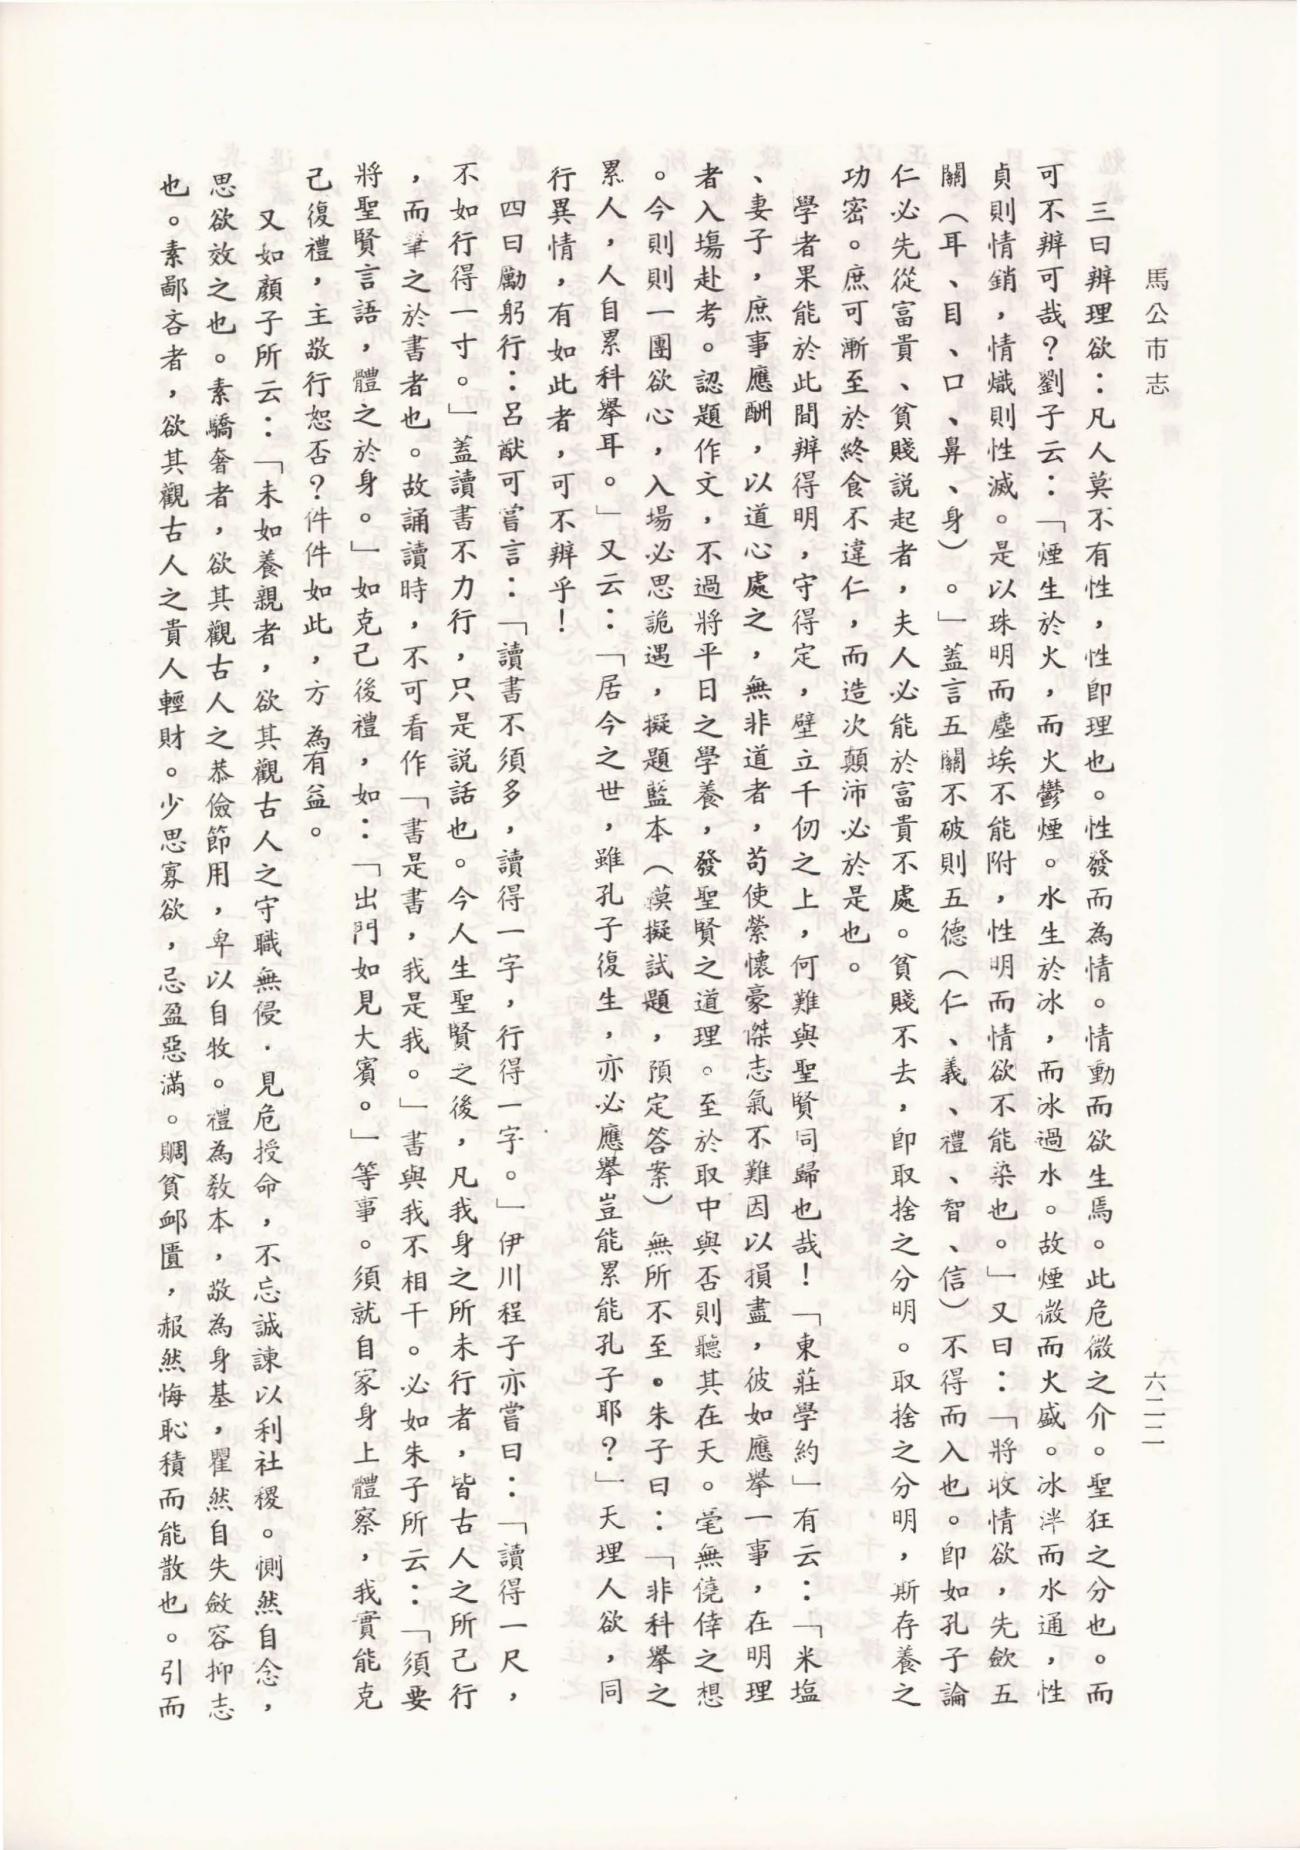 馬公市志
六二二
三曰辨理欲：凡人莫不有性，性即理也。性發而為情。情動而欲生焉。此危微之介。聖狂之分也。而
可不辨可哉？劉子云：「煙生於火，而火鬱煙。水生於冰，而冰過水。故煙微而火盛。冰泮而水通，性
貞則情銷，情熾則性滅。是以珠明而塵埃不能附，性明而情欲不能染也。」又曰：「將收情欲，先斂五
關（耳、目、口、鼻、身）。」蓋言五關不破則五德（仁、義、禮、智、信）不得而入也。即如孔子論
仁必先從富貴、貧賤說起者，夫人必能於富貴不處。貧賤不去，即取捨之分明。取捨之分明，斯存養之
功密。庶可漸至於終食不違仁，而造次顛沛必於是也。
學者果能於此間辨得明，守得定，壁立千仞之上，何難與聖賢同歸也哉！「東莊學約」有云：「米塩
、妻子，庶事應酬，以道心處之，無非道者，苟使縈懷豪傑志氣不難因以損盡，彼如應舉一事，在明理
者入塲赴考。認題作文，不過將平日之學養，發聖賢之道理。至於取中與否則聽其在天。毫無僥倖之想
。今則則一團欲心，入場必思詭遇，擬題藍本（摸擬試題，預定答案）無所不至。朱子曰：「非科舉之
累人，人自累科舉耳。」又云：「居今之世，雖孔子復生，亦必應舉豈能累能孔子耶？」天理人欲，同
行異情，有如此者，可不辨乎！
四曰勵躬行：呂猷可嘗言：「讀書不須多，讀得一字，行得一字。」伊川程子亦嘗曰：「讀得一尺，
不如行得一寸。」蓋讀書不力行，只是說話也。今人生聖賢之後，凡我身之所未行者，皆古人之所己行
，而筆之於書者也。故誦讀時，不可看作「書是書，我是我。」書與我不相干。必如朱子所云：「須要
將聖賢言語，體之於身。」如克己後禮，如：「出門如見大賓。」等事。須就自家身上體察，我實能克
己復禮，主敬行恕否？件件如此，方為有益。
又如顏子所云：「未如養親者，欲其觀古人之守職無侵．見危授命，不忘誠諫以利社稷。惻然自念，
思欲效之也。素驕奢者，欲其觀古人之恭儉節用，卑以自牧。禮為教本，敬為身基，瞿然自失斂容抑志
也。素鄙吝者，欲其觀古人之貴人輕財。少思寡欲，忌盈惡滿。賙貧卹匱，赧然悔恥積而能散也。引而